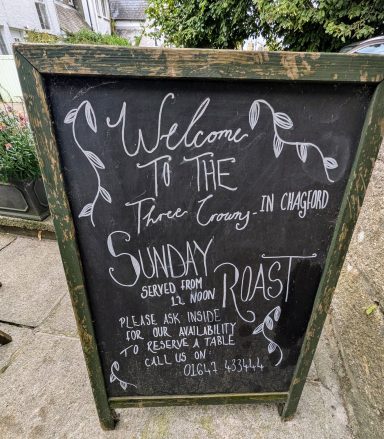 Welcome
TO THE
Three Crowns - IN CHAGFORD
SUNDAY
SERVED FROM
12 NOON
ROAST
PLEASE ASK INSIDE
FOR OUR AVAILABILITY
TO RESERVE A TABLE
CALL US ON:
01647 433444